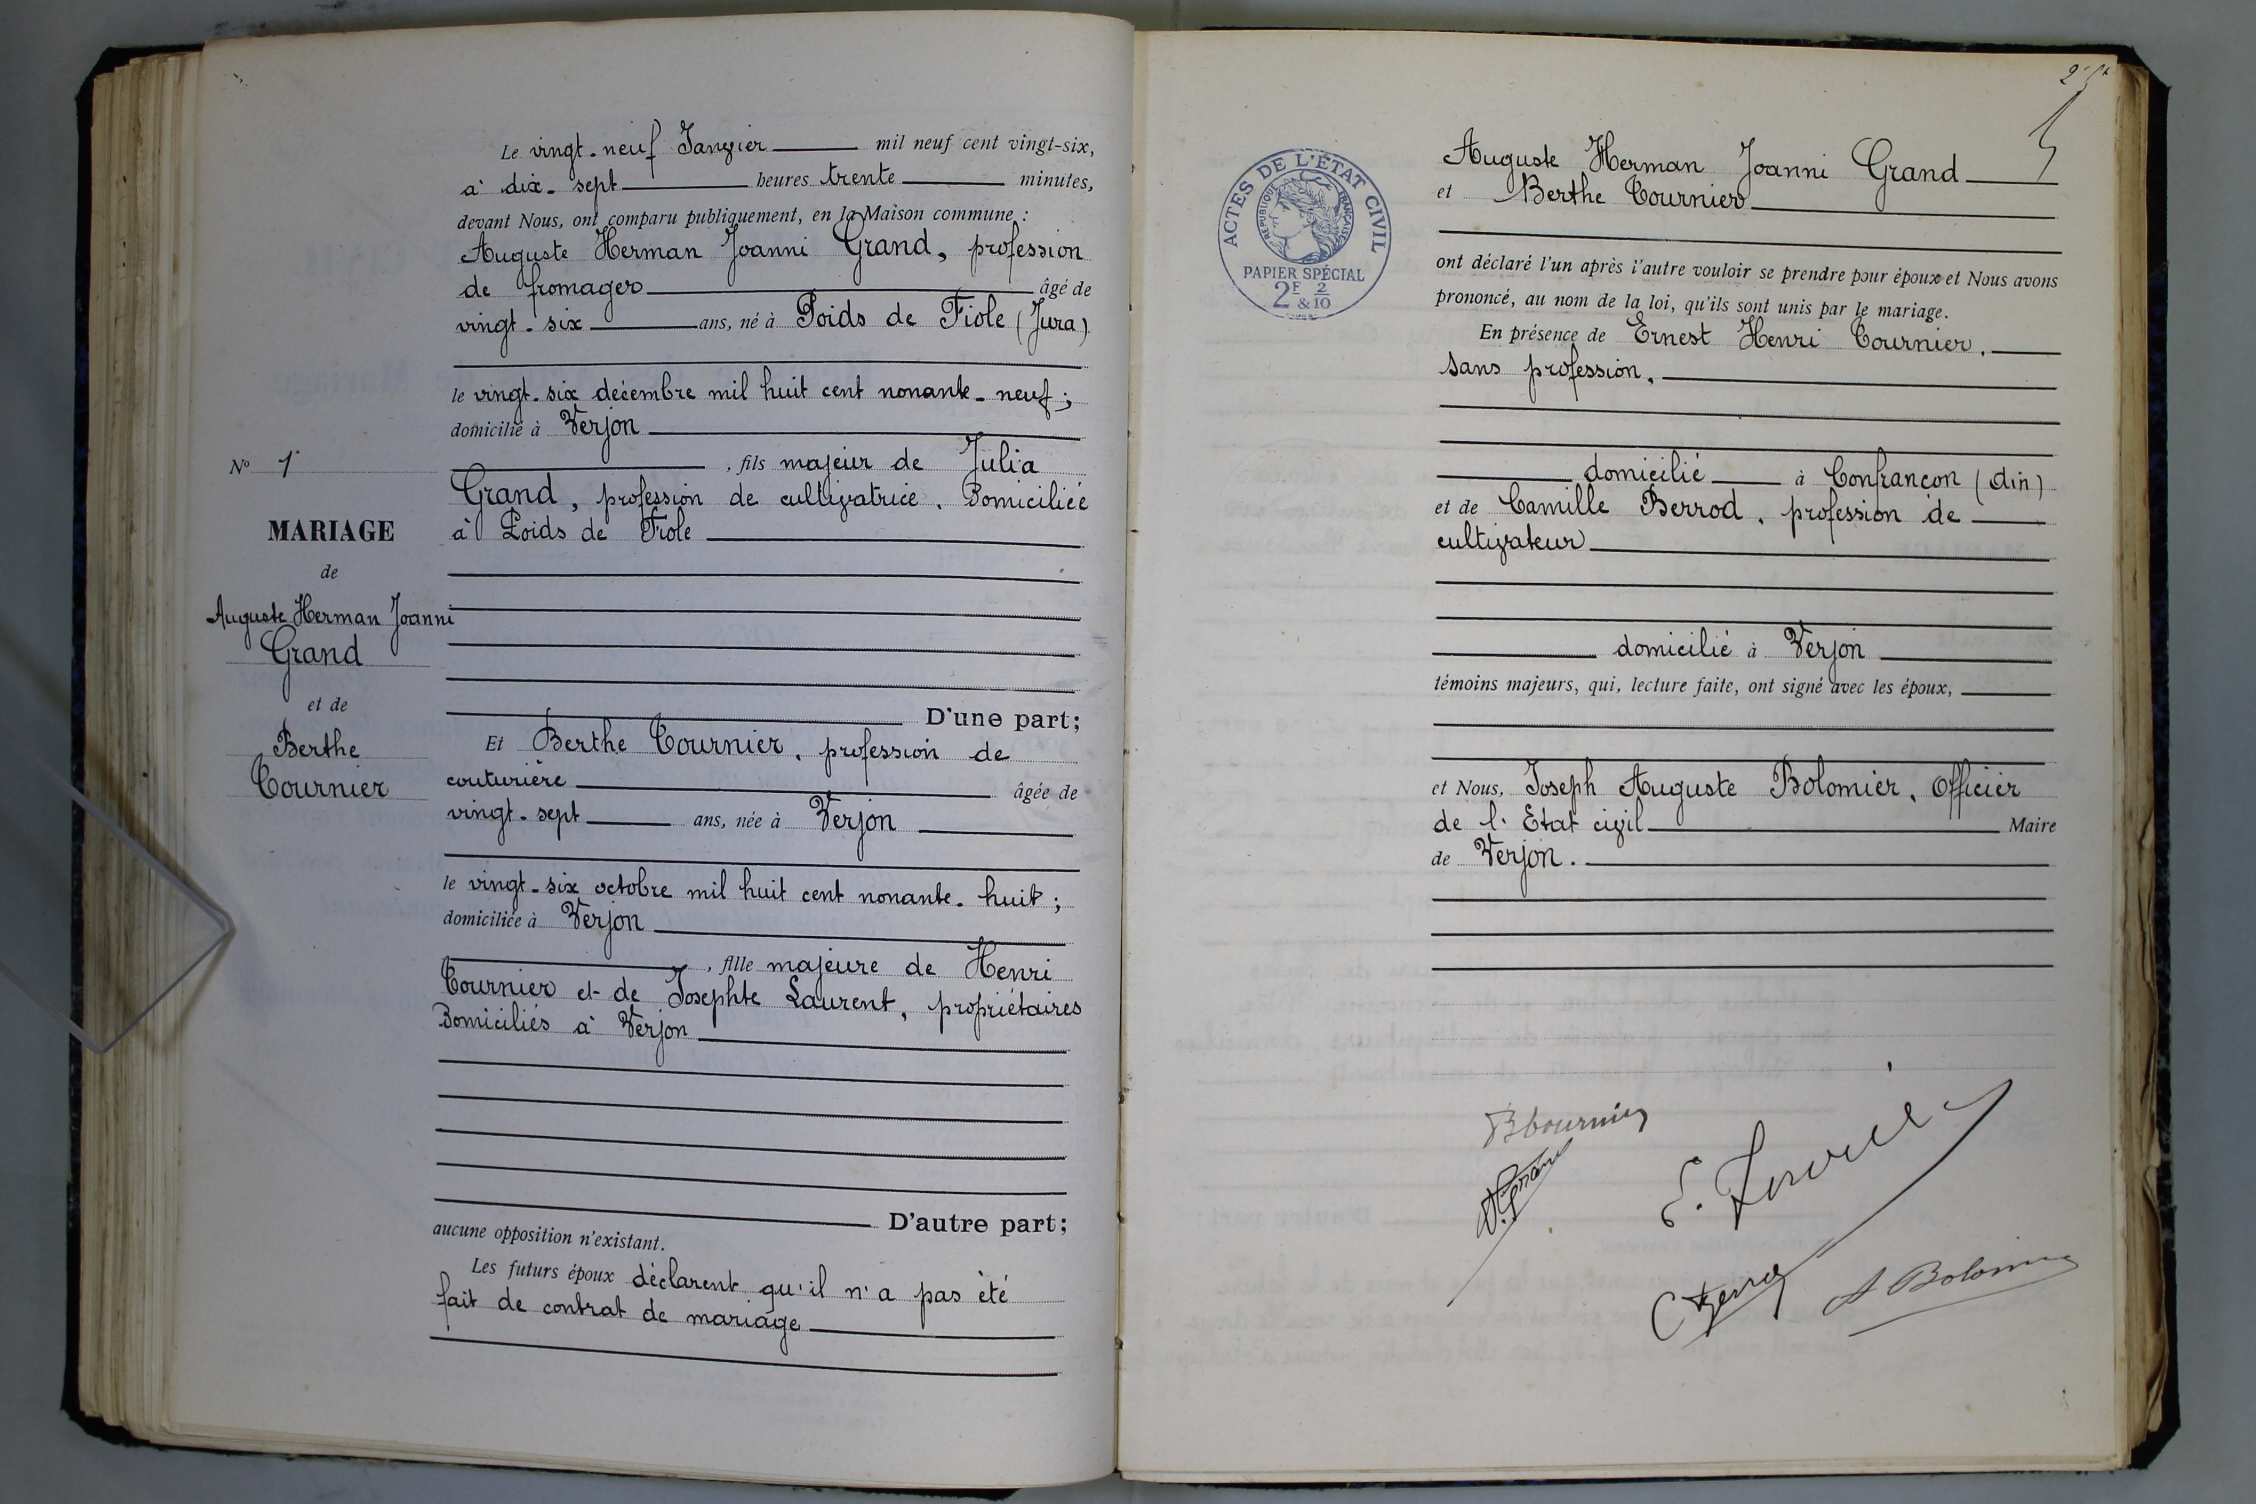 Le vingt-neuf Janvier mil neuf cent vingt-six,
à dix-sept heures trente minutes,
devant Nous, ont comparu publiquement, en la Maison commune :
Auguste Herman Joanni Grand, profession
de fromager âgé de
vingt-six ans, né à Poids de Fiole (Jura)
le vingt-six décembre mil huit cent nonante-neuf ;
domicilié à Verjon
, fils majeur de Julia
Grand, profession de cultivatrice. Domiciliée
à Poids de Fiole
D'une part;
Et Berthe Tournier, profession de
couturière âgée de
vingt-sept ans, née à Verjon
le vingt-six octobre mil huit cent nonante-huit ;
domiciliée à Verjon
, fille majeure de Henri
Tournier et de Josephte Laurent, propriétaires
Domiciliés à Verjon
D'autre part;
aucune opposition n'existant.
Les futurs époux déclarent qu'il n'a pas été
fait de contrat de mariage
No 1
MARIAGE
de
Auguste Herman Joanni
Grand
et de
Berthe
Tournier
ACTES DE L'ÉTAT CIVIL
RÉPUBLIQUE FRANÇAISE
PAPIER SPÉCIAL
2F & 2/10
Auguste Herman Joanni Grand
et Berthe Tournier
ont déclaré l'un après l'autre vouloir se prendre pour époux et Nous avons
prononcé, au nom de la loi, qu'ils sont unis par le mariage.
En présence de Ernest Henri Tournier,
sans profession,
domicilié à Confrançon (Ain)
et de Camille Berrod, profession de
cultivateur
domicilié à Verjon
témoins majeurs, qui, lecture faite, ont signé avec les époux,
et Nous, Joseph Auguste Bolomier, Officier
de l'Etat civil Maire
de Verjon.
B Tournier
A Bolomier